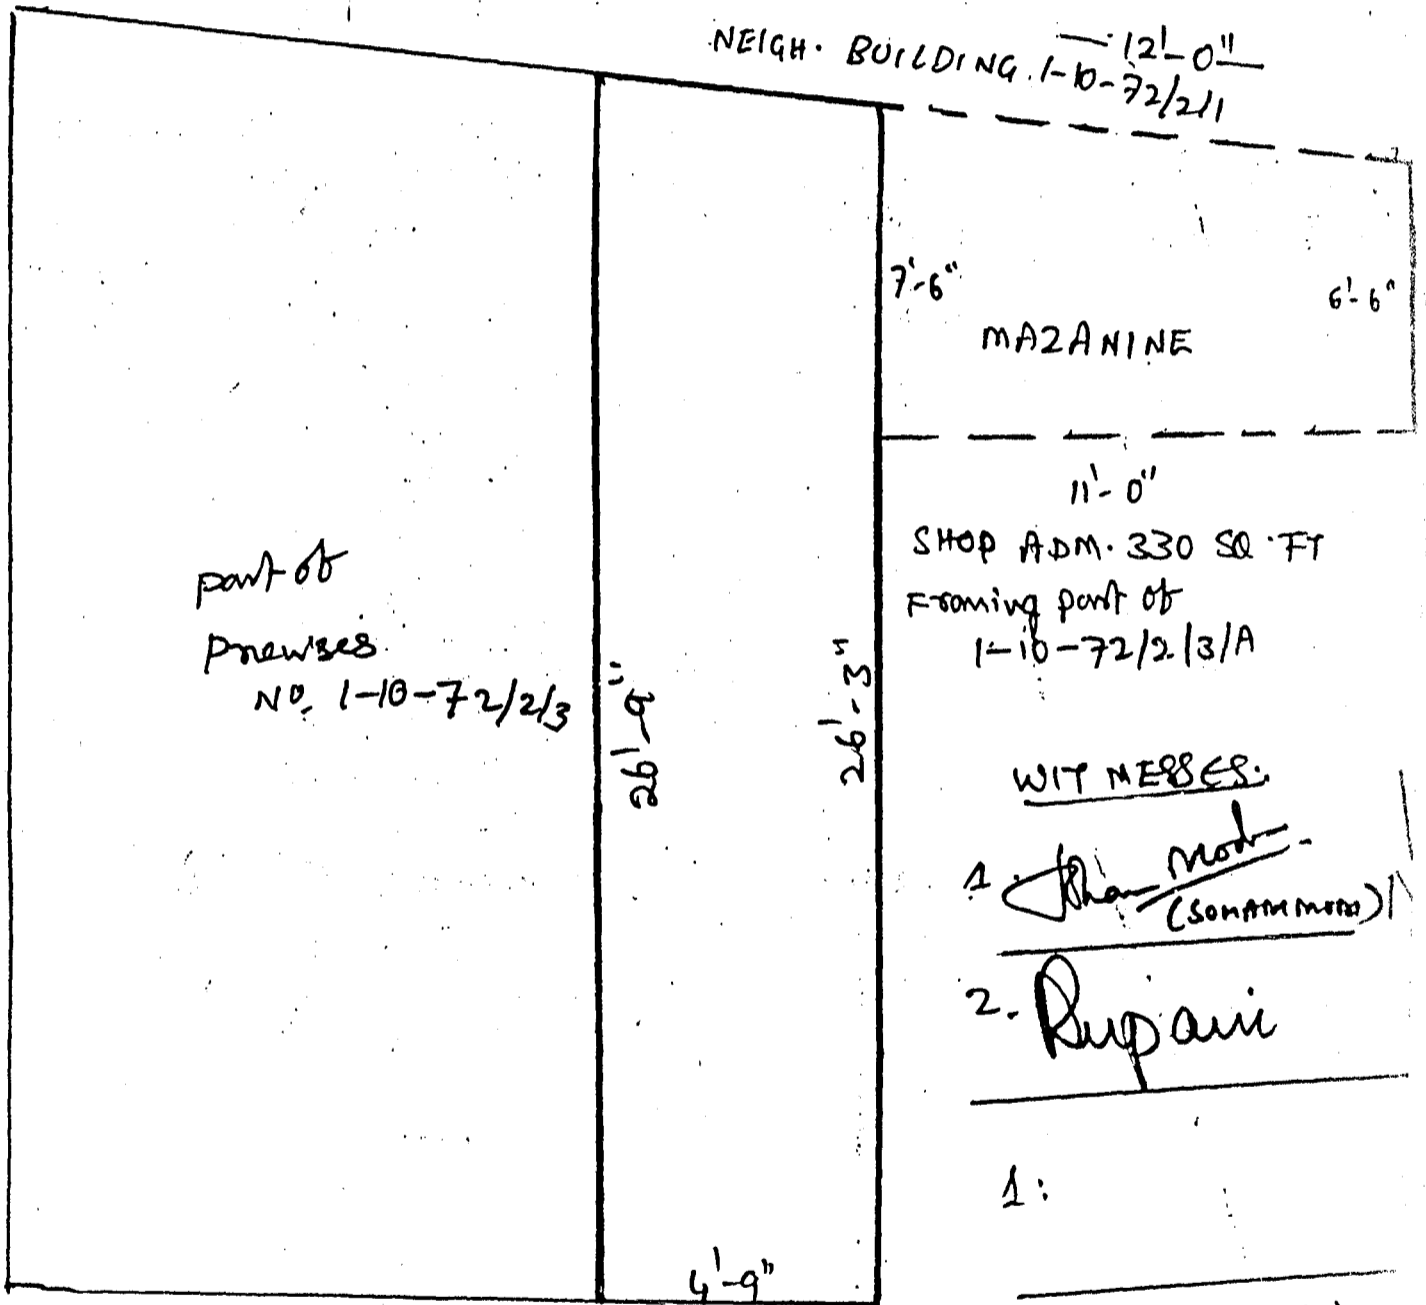 NEIGH. BUILDING. 1-10-72/2/1
12'-0"
7'-6"
6'-6"
MAZANINE
11'-0"
SHOP ADM. 330 SQ.FT
Froming part of
1-10-72/2/3/A
part of
premises
No. 1-10-72/2/3
26'-9"
26'-3"
4'-9"
WITMESSES:
1.
(SOHAM MODI)
2. Rupani
1: